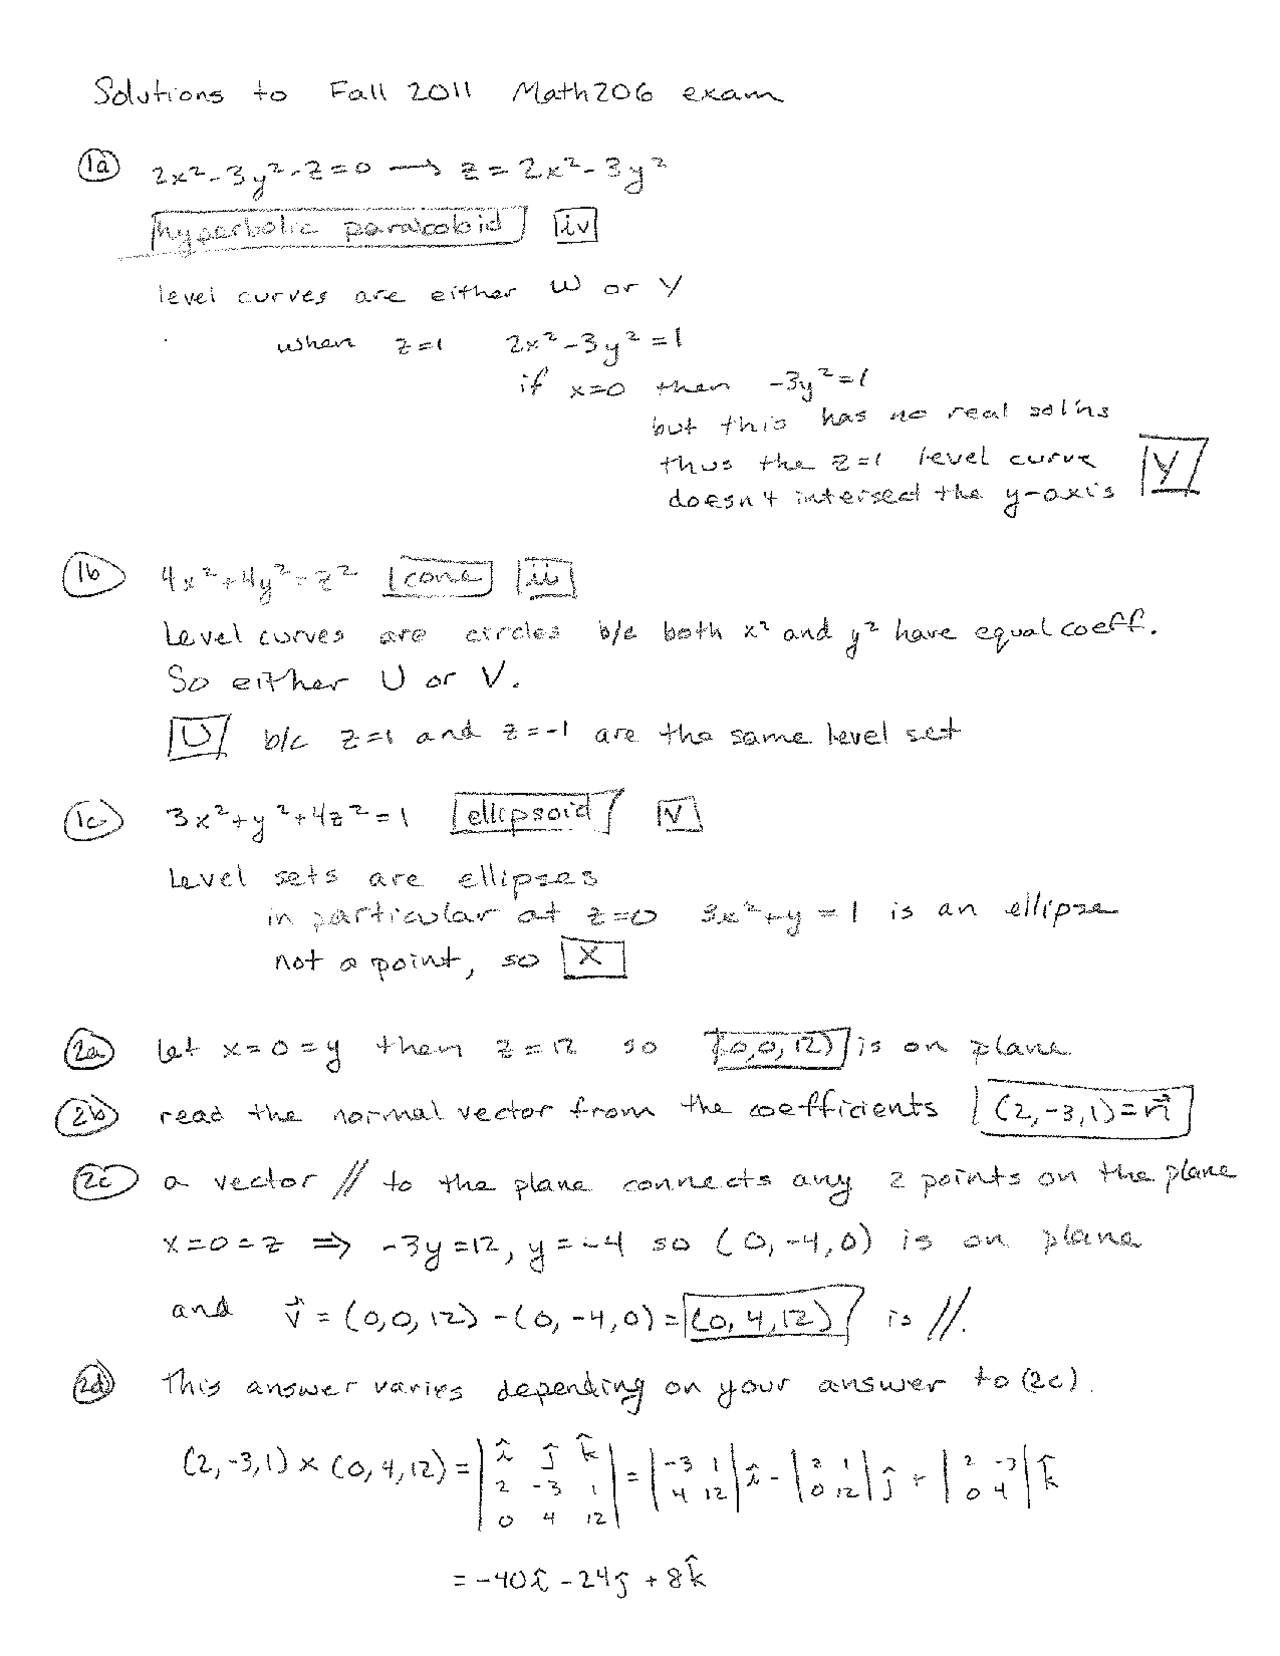 Solutions to Fall 2011 Math206 exam
1a 2x²-3y²-z=0 → z=2x²-3y²
hyperbolic paraboloid iv
level curves are either W or Y
when z=1 2x²-3y²=1
if x=0 then -3y²=1
but this has no real sol'ns
thus the z=1 level curve
doesn't intersect the y-axis Y
1b 4x²+4y²=z² cone ii
Level curves are circles b/c both x² and y² have equal coeff.
So either U or V.
U b/c z=1 and z=-1 are the same level set
1c 3x²+y²+4z²=1 ellipsoid V
Level sets are ellipses
in particular at z=0 3x²+y=1 is an ellipse
not a point, so X
2a let x=0=y then z=12 so (0,0,12) is on plane
2b read the normal vector from the coefficients (2,-3,1)=n⃗
2c a vector // to the plane connects any 2 points on the plane
x=0=z ⇒ -3y=12, y=-4 so (0,-4,0) is on plane
and v⃗=(0,0,12)-(0,-4,0)=(0,4,12) is //.
2d This answer varies depending on your answer to (2c).
(2,-3,1)×(0,4,12)=|î ĵ k̂|=|-3 1|î-|2 1|ĵ+|2 -3|k̂
2 -3 1 4 12 0 12 0 4
0 4 12
=-40î-24ĵ+8k̂